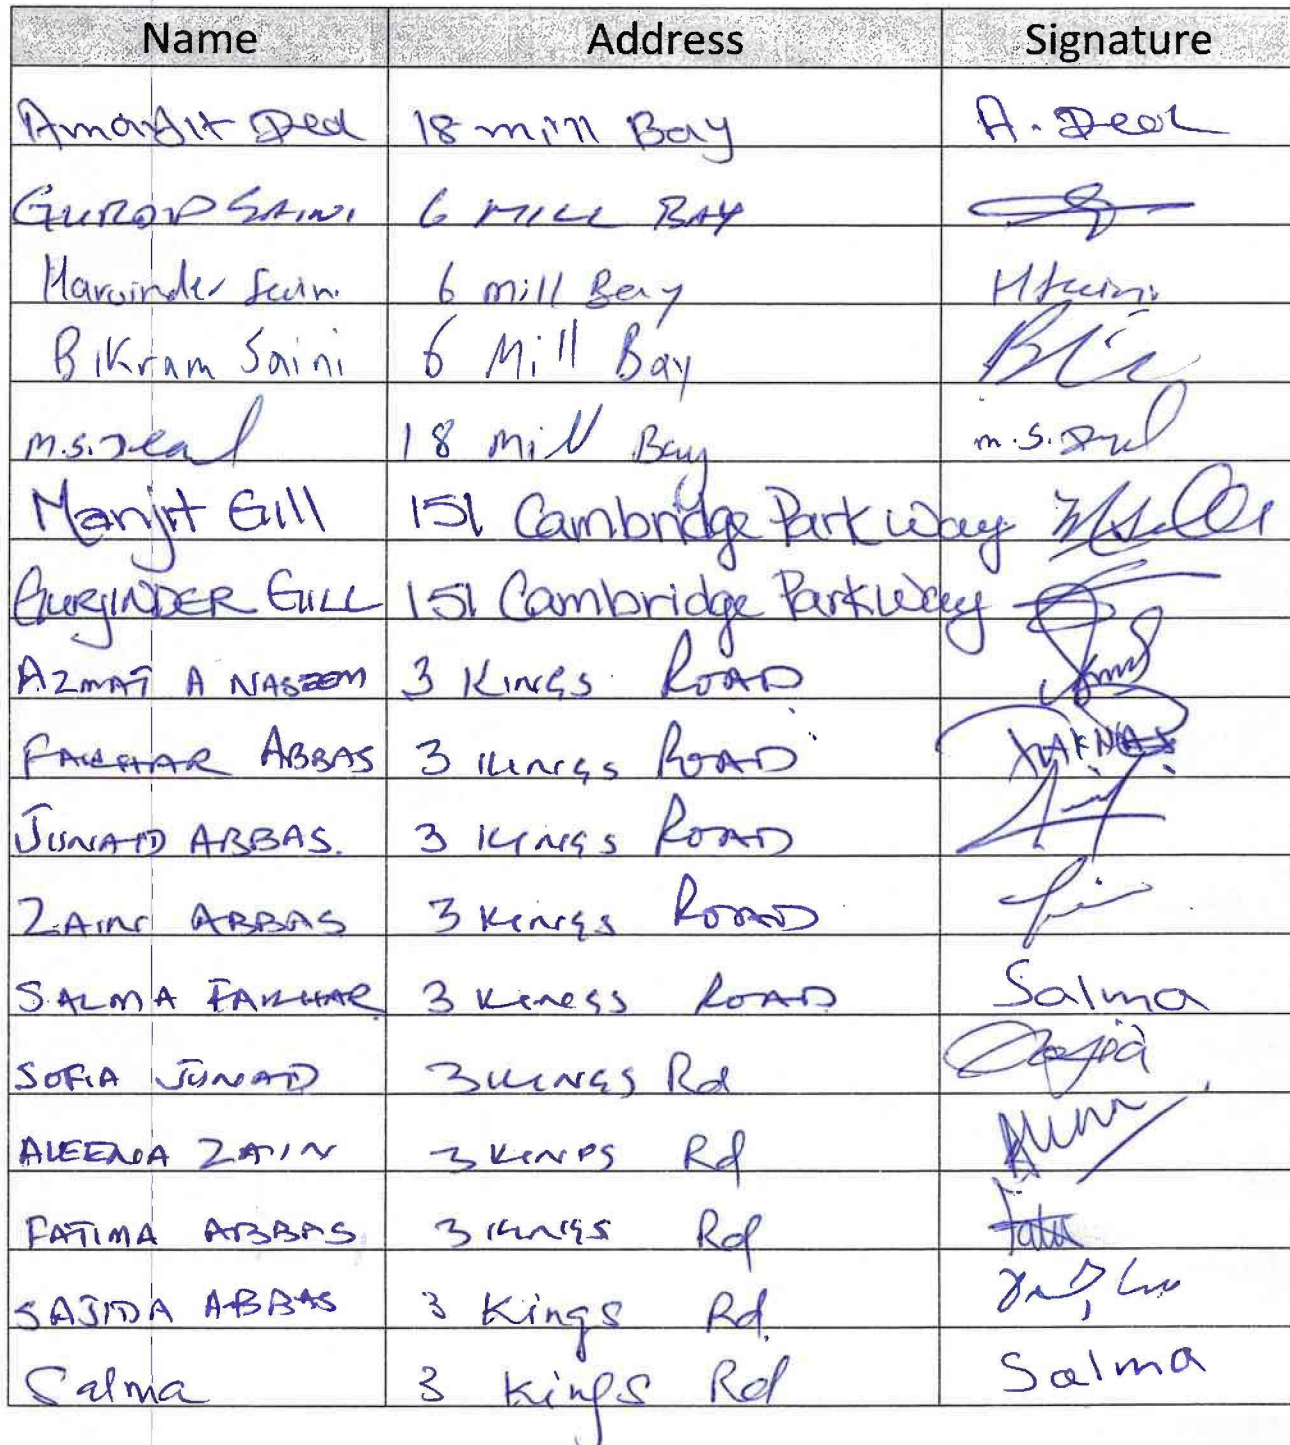 Name Address Signature
Amarjit Deol 18 mill Bay A. Deol
GURDIP SAINI 6 MILL BAY
Harvinder Saini 6 Mill Bay H Saini
Bikram Saini 6 Mill Bay
M.S. Deol 18 Mill Bay m.S. Deol
Manjit Gill 151 Cambridge Park Way
GURJINDER GILL 151 Cambridge Parkway
AZMAT A NASEEM 3 KINGS ROAD
FAKHAR ABBAS 3 KINGS ROAD
JUNAID ABBAS. 3 KINGS ROAD
ZAIN ABBAS 3 KINGS ROAD
SALMA FAKHAR 3 KINGS ROAD Salma
SOFIA JUNAID 3 KINGS Rd Sofia
ALEENA ZAIN 3 KINGS Rd
FATIMA ABBAS 3 KINGS Rd
SAJIDA ABBAS 3 Kings Rd.
Salma 3 Kings Rd Salma